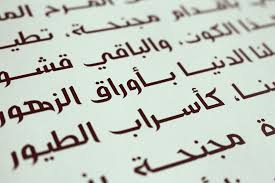 المرح
بأقدام مجنحة، تطير
هذا الكون، والباقي قشور
لنا الدنيا بأوراق الزهور
كأسراب الطيور
مجنحة